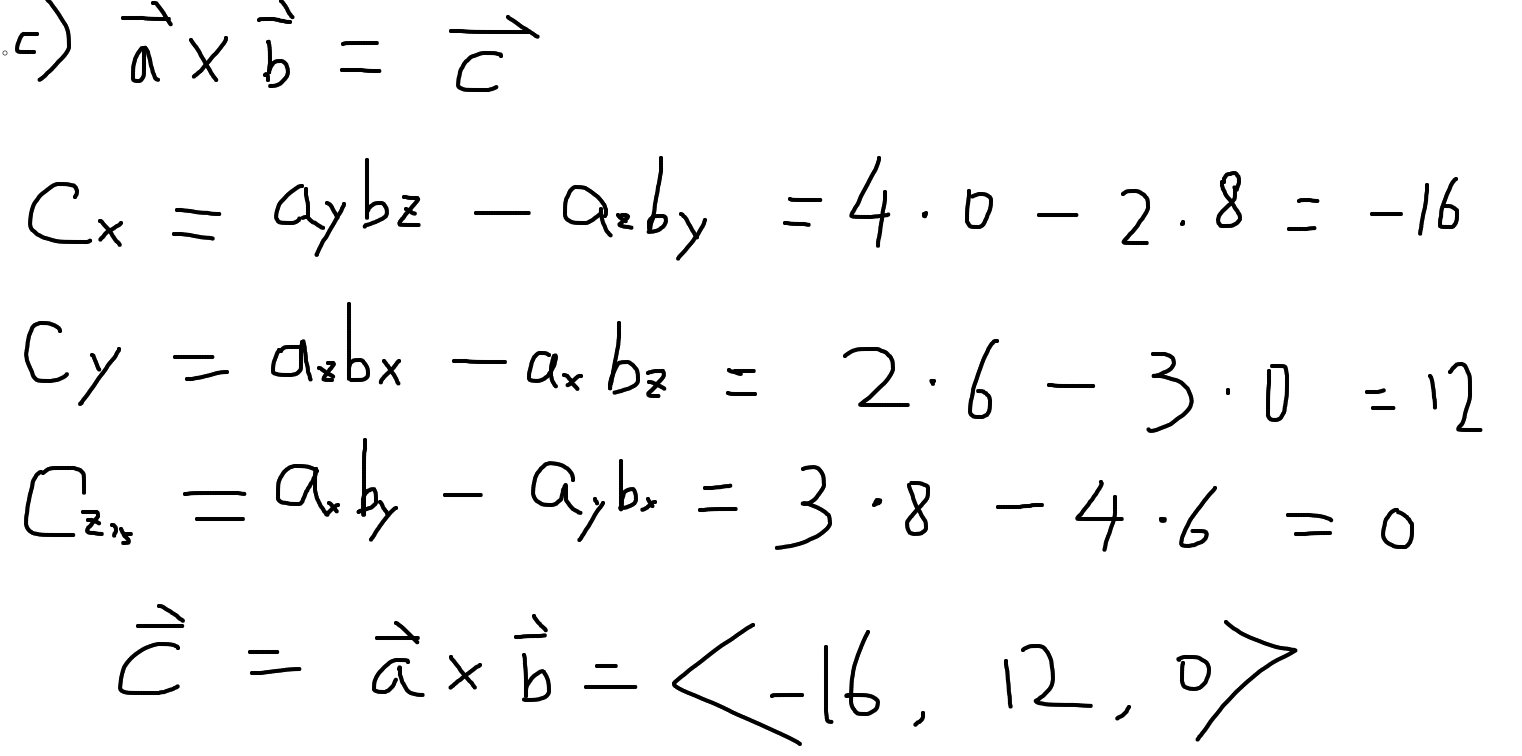 c) \vec{a} × \vec{b} = \vec{c}
C_x = a_y b_z - a_z b_y = 4 · 0 - 2 · 8 = -16
C_y = a_z b_x - a_x b_z = 2 · 6 - 3 · 0 = 12
C_z = a_x b_y - a_y b_x = 3 · 8 - 4 · 6 = 0
\vec{c} = \vec{a} × \vec{b} = <-16, 12, 0>